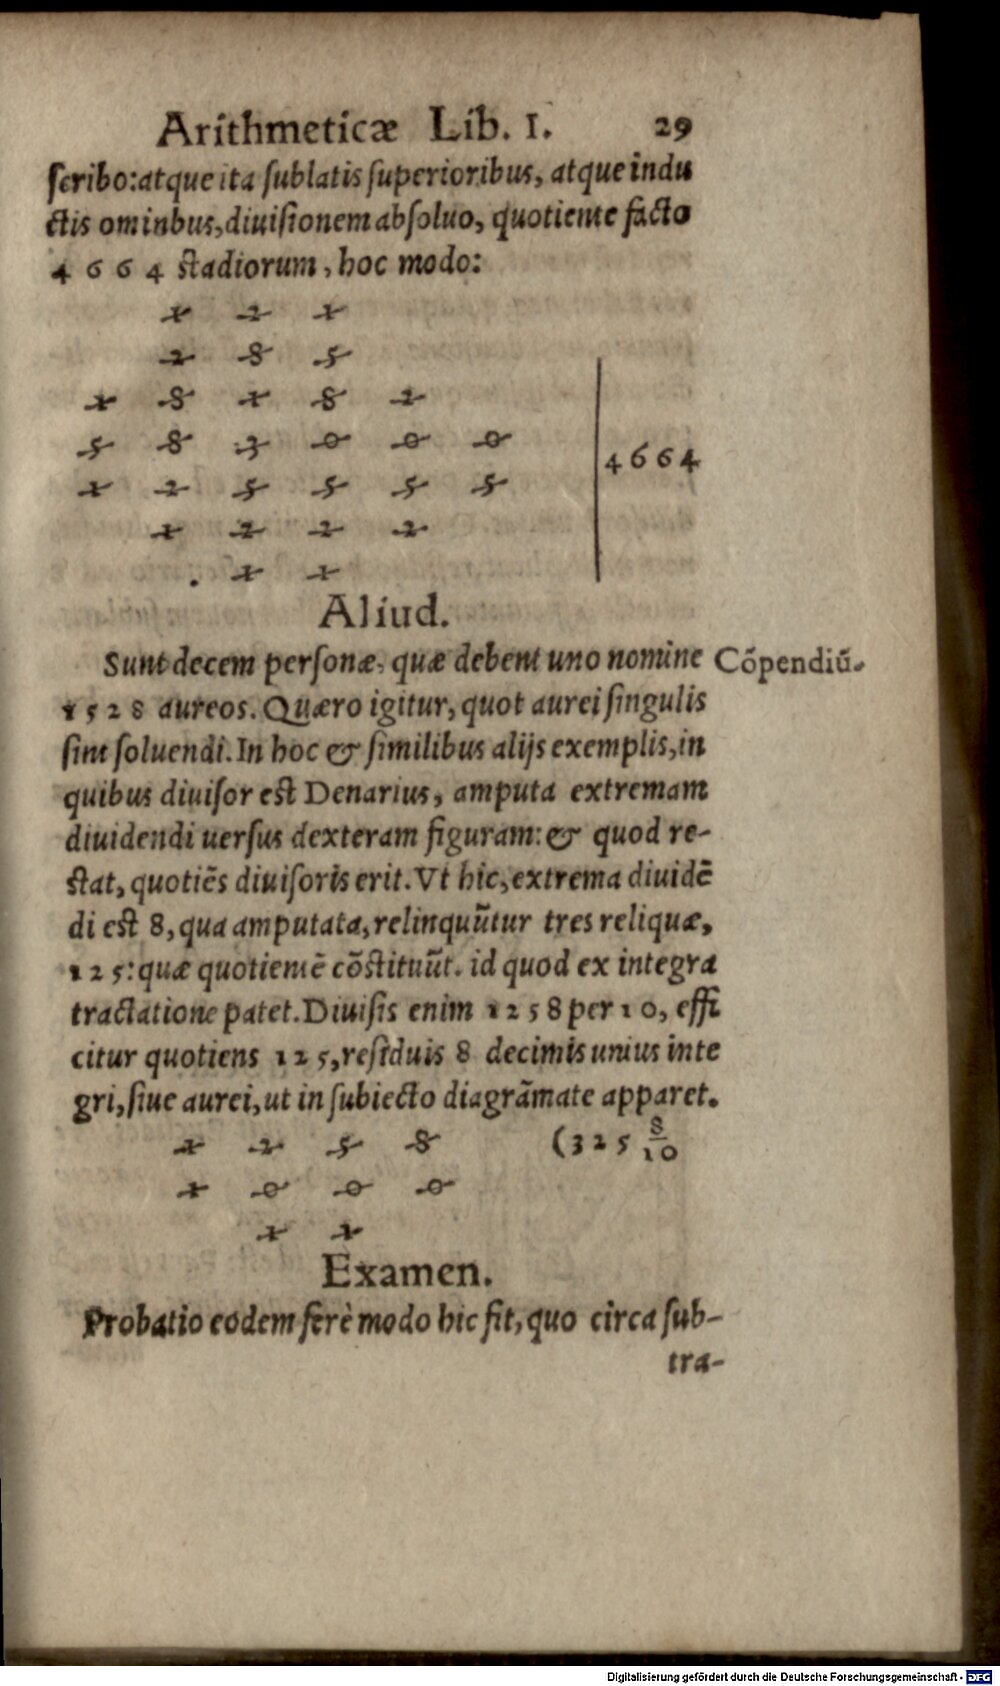 Arithmeticæ Lib. I. 29
scribo: atque ita sublatis superioribus, atque indu
ctis ominbus, diuisionem absoluo, quotiente facto
4 6 6 4 stadiorum, hoc modo:
1 2 1
2 8 5
1 8 1 8 2
5 8 3 0 0 0
4 6 6 4
1 2 5 5 5 5
1 2 2 2
1 1
Aliud.
Sunt decem personæ, quæ debent uno nomine Cōpendiū.
1 5 2 8 aureos. Quæro igitur, quot aurei singulis
sint soluendi. In hoc & similibus alijs exemplis, in
quibus diuisor est Denarius, amputa extremam
diuidendi uersus dexteram figuram: & quod re-
stat, quotiēs diuisoris erit. Vt hic, extrema diuidē
di est 8, qua amputata, relinquūtur tres reliquæ,
1 2 5: quæ quotientē cōstituūt. id quod ex integra
tractatione patet. Diuisis enim 1 2 5 8 per 1 0, effi
citur quotiens 1 2 5, residuis 8 decimis unius inte
gri, siue aurei, ut in subiecto diagrāmate apparet.
1 2 5 8 (3 2 5 8/10
1 0 0 0
1 1
Examen.
Probatio eodem ferè modo hic fit, quo circa sub-
tra-
Digitalisierung gefördert durch die Deutsche Forschungsgemeinschaft - DFG